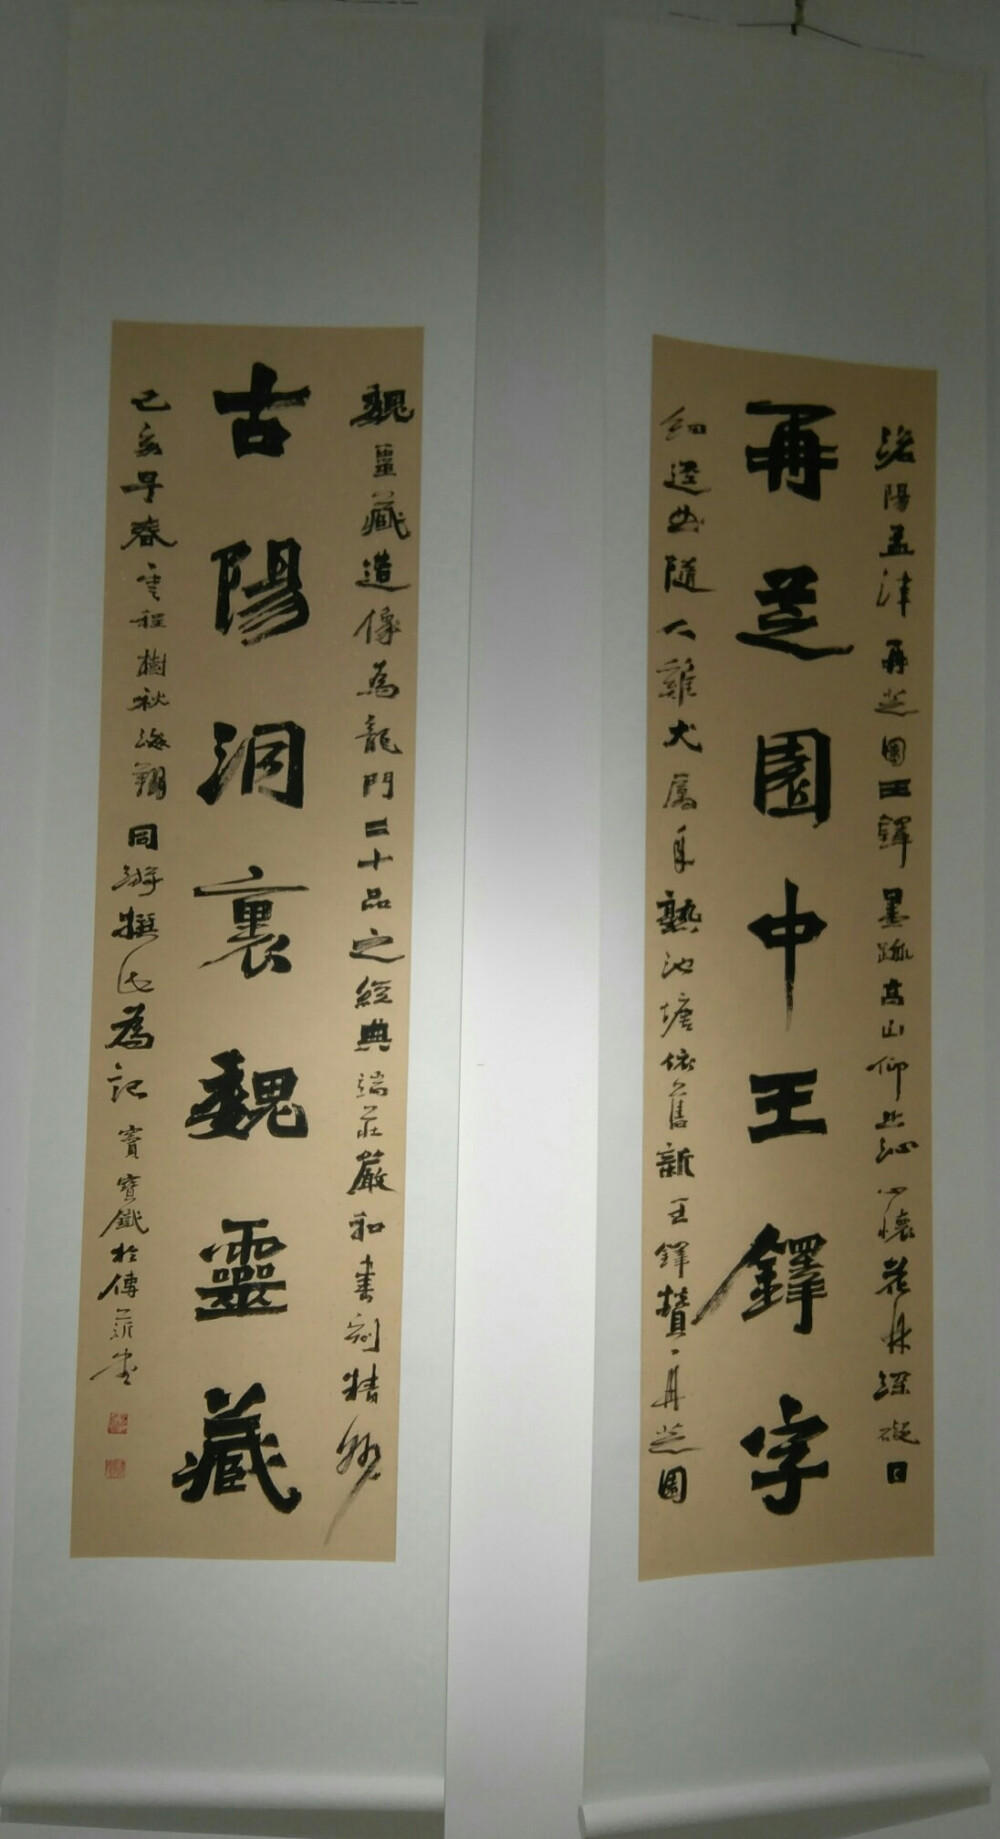 再芝園中王鐸字
洛陽孟津再芝園王鐸墨跡高山仰止沁心懷花林深礙日
細逕曲隨人雞犬屬自熟池塘依舊新王鐸贊再芝園
古陽洞裏魏靈藏
魏靈藏造像為龍門二十品之經典端莊嚴和書刻精妙
己亥早春 程樹秋海翔同遊撰此為記 寶鐵於傳